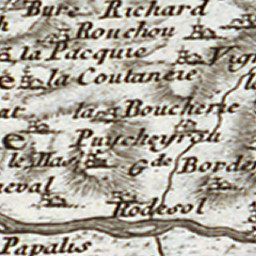 Bure Richard
h Rouchou
la Pacquie Vign
la Coutancie
at la Boucherie
Puycheyrou
le Mas Gde Border
neval
Rodesol
Papalis